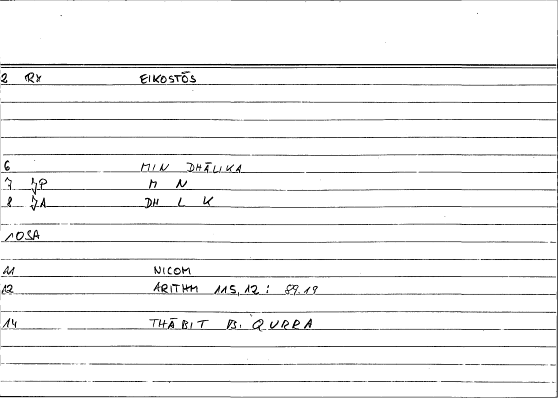 2 RX EIKOSTŌS
6 MIN DHĀLIKA
7 JP M N
8 JA DH L K
10SA
11 NICOM
12 ARITHM 115,12: 89.19
14 THĀBIT B. QURRA